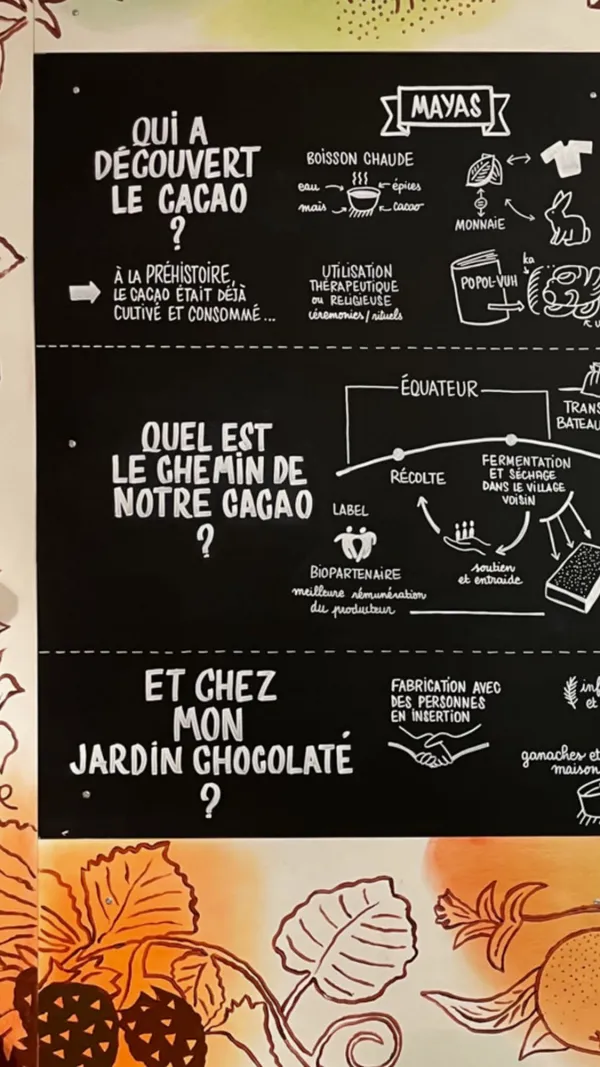 MAYAS
QUI A
DÉCOUVERT
LE CACAO
?
À LA PRÉHISTOIRE,
LE CACAO ÉTAIT DÉJÀ
CULTIVÉ ET CONSOMMÉ...
BOISSON CHAUDE
eau
épices
maïs
cacao
MONNAIE
UTILISATION
THÉRAPEUTIQUE
OU RELIGIEUSE
cérémonies / rituels
POPOL-VUH
ka
QUEL EST
LE CHEMIN DE
NOTRE CACAO
?
ÉQUATEUR
TRANS
BATEAU
RÉCOLTE
FERMENTATION
ET SÉCHAGE
DANS LE VILLAGE
VOISIN
LABEL
BIOPARTENAIRE
meilleure rémunération
du producteur
soutien
et entraide
ET CHEZ
MON
JARDIN CHOCOLATÉ
?
FABRICATION AVEC
DES PERSONNES
EN INSERTION
inf
et
ganaches et
maison